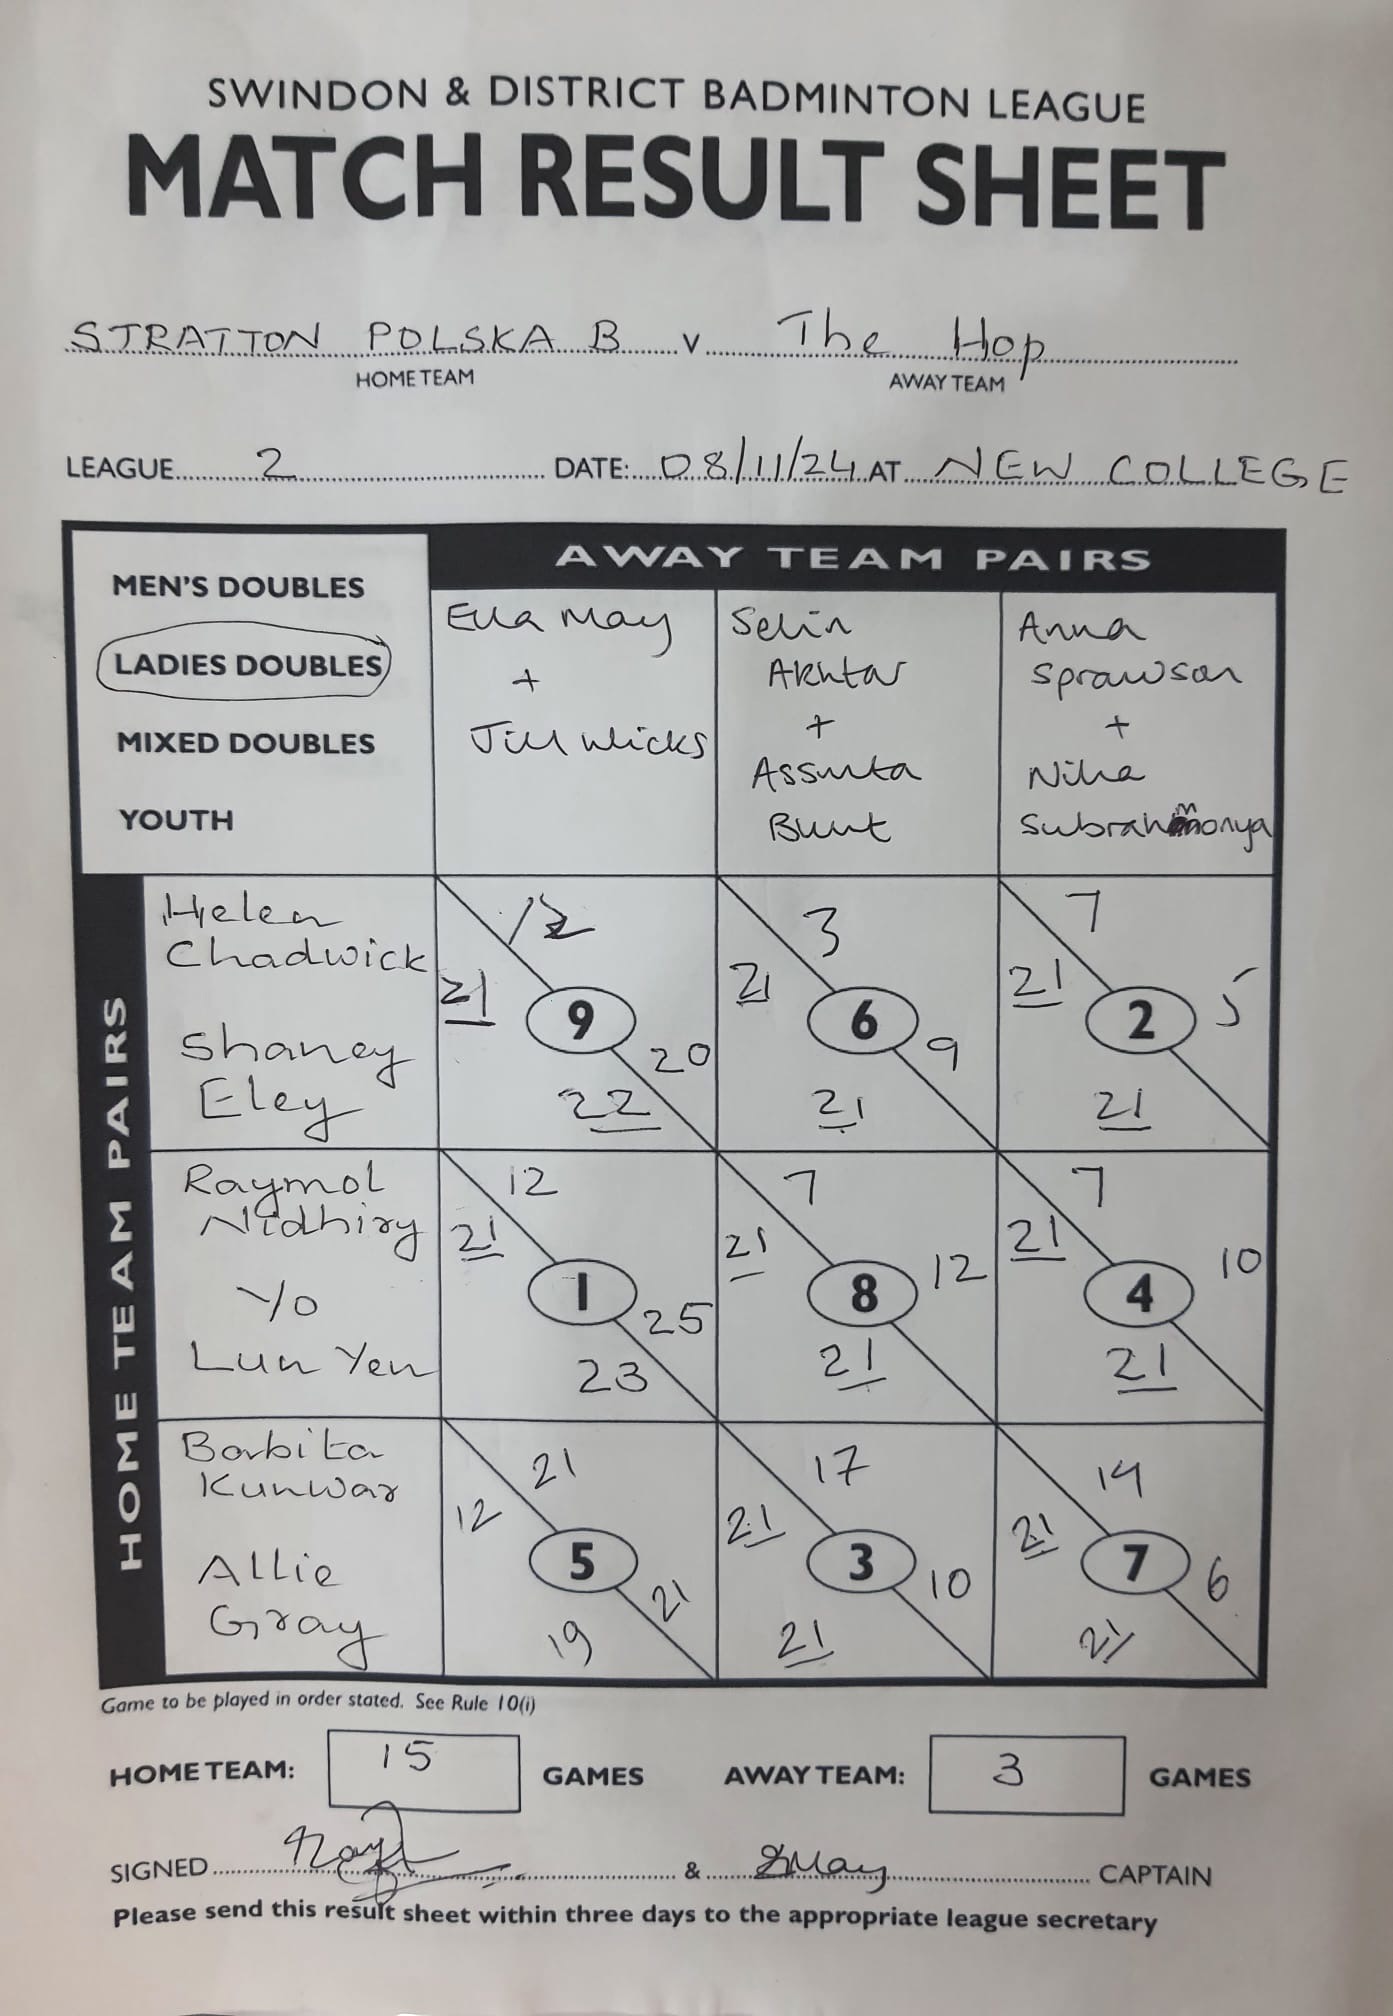 SWINDON & DISTRICT BADMINTON LEAGUE
MATCH RESULT SHEET
STRATTON POLSKA B v The Hop
HOME TEAM AWAY TEAM
LEAGUE 2 DATE: 08/11/24 AT NEW COLLEGE
AWAY TEAM PAIRS
MEN'S DOUBLES
LADIES DOUBLES
MIXED DOUBLES
YOUTH
Ella May
+
Jill Wicks
Selin
Akhtar
+
Assunta
Bunt
Anna
Sprawson
+
Niha
Subrahmonya
HOME TEAM PAIRS
Helen
Chadwick
Shaney
Eley
12
21
9
20
22
3
21
6
9
21
7
21
2
5
21
Raymol
Nidhiry
Yo
Lun Yen
12
21
1
25
23
7
21
8
12
21
7
21
4
10
21
Barbita
Kunwar
Allie
Gray
21
12
5
21
19
17
21
3
10
21
14
21
7
6
21
Game to be played in order stated. See Rule 10(i)
HOME TEAM: 15 GAMES AWAY TEAM: 3 GAMES
SIGNED & EMay CAPTAIN
Please send this result sheet within three days to the appropriate league secretary